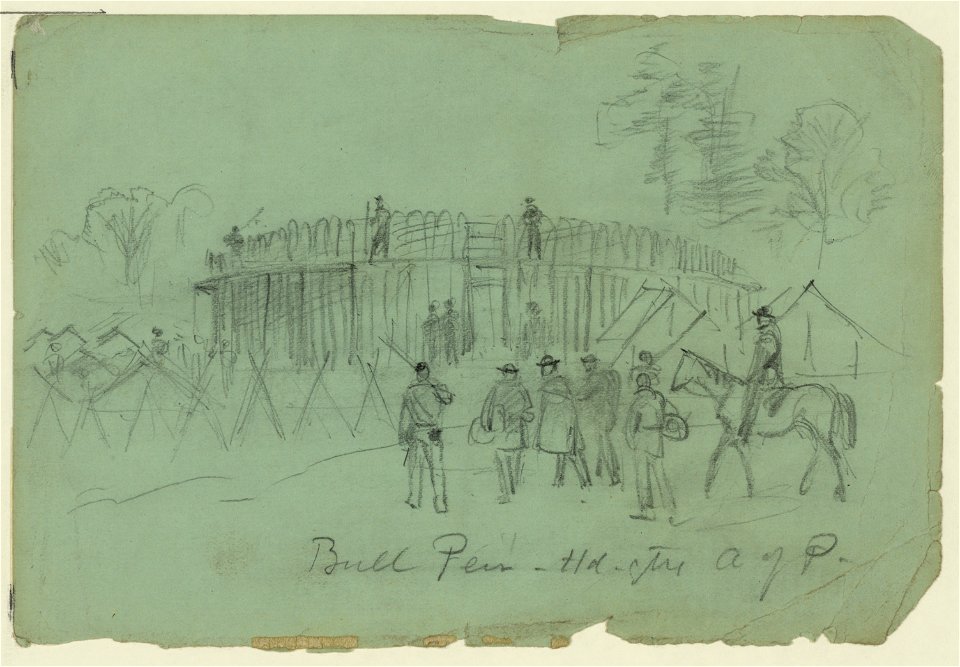 Bull Pen - Hd-qtrs A of P-